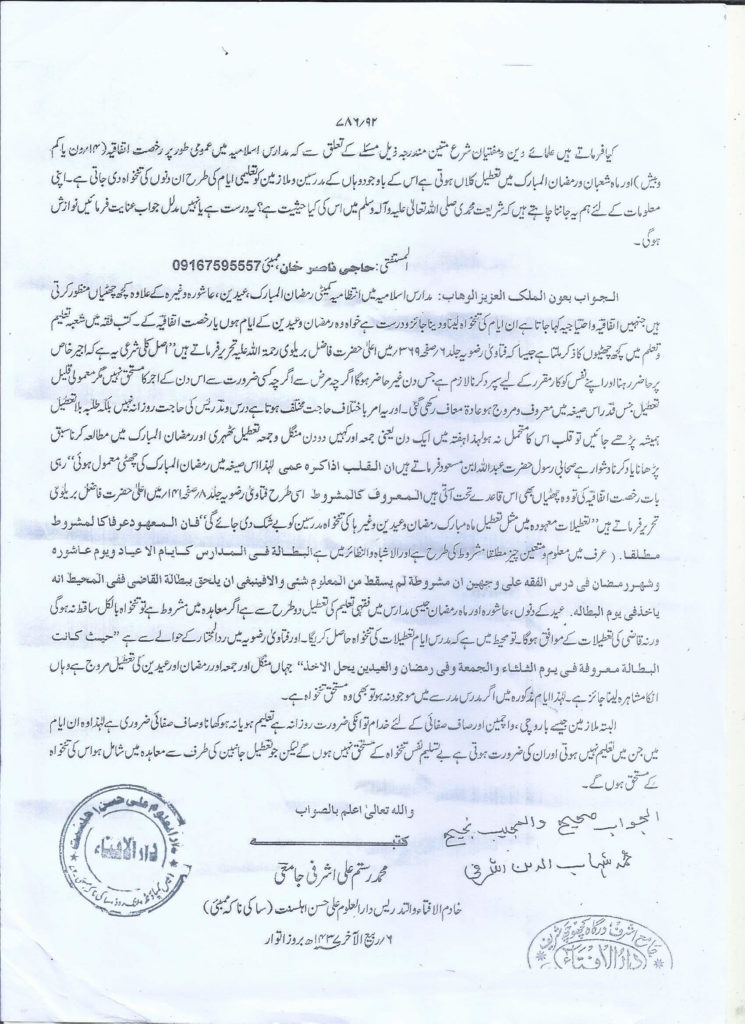 ۷۸۶/۹۲
کیا فرماتے ہیں علمائے دین و مفتیان شرع متین مندرجہ ذیل مسئلے کے تعلق سے کہ مدارس اسلامیہ میں عمومی طور پر رخصت اتفاقیہ (۱۴؍دن یا کم
و بیش) اور ماہ شعبان و رمضان المبارک میں تعطیل کلاں ہوتی ہے اس کے باوجود وہاں کے مدرسین و ملازمین کو تعلیمی ایام کی طرح ان دنوں کی تنخواہ دی جاتی ہے۔ اپنی
معلومات کے لئے ہم یہ جاننا چاہتے ہیں کہ شریعت محمدی صلی اللہ تعالیٰ علیہ وآلہ وسلم میں اس کی کیا حیثیت ہے؟ یہ درست ہے یا نہیں مدلل جواب عنایت فرمائیں نوازش
ہوگی۔
المستفتی: حاجی ناصر خان، ممبئی 09167595557
الجواب بعون الملک العزیز الوهاب: مدارس اسلامیہ میں انتظامیہ کمیٹی رمضان المبارک، عیدین، عاشورہ وغیرہ کے علاوہ کچھ چھٹیاں منظور کرتی
ہیں جنہیں اتفاقیہ و احتیاجیہ کہا جاتا ہے ان ایام کی تنخواہ لینا و دینا جائز و درست ہے خواہ وہ رمضان و عیدین کے ایام ہوں یا رخصت اتفاقیہ کے۔ کتب فقہ میں شعبہ تعلیم
و تعلم میں کچھ چھٹیوں کا ذکر ملتا ہے جیسا کہ فتاویٰ رضویہ جلد ۶؍صفحہ ۳۶۹ میں اعلیٰ حضرت فاضل بریلوی رحمۃ اللہ علیہ تحریر فرماتے ہیں "اصل کلی شرعی یہ ہے کہ اجیر خاص
پر حاضر رہنا اور اپنے نفس کو کار مقرر کے لیے سپرد کرنا لازم ہے جس دن غیر حاضر ہوگا اگرچہ مرض سے اگرچہ کسی ضرورت سے اس دن کے اجر کا مستحق نہیں مگر معمولی قلیل
تعطیل جس قدر اس صیغہ میں معروف و مروج ہو عادۃً معاف رکھی گئی۔ اور یہ امر باختلاف حاجت مختلف ہوتا ہے درس و تدریس کی حاجت روزانہ نہیں بلکہ طلبہ بلا تعطیل
ہمیشہ پڑھے جائیں تو قلب اس کا متحمل نہ ہو لہذا ہفتہ میں ایک دن یعنی جمعہ اور کہیں دو دن منگل و جمعہ تعطیل ٹھہری اور رمضان المبارک میں مطالعہ کرنا سبق
پڑھانا یاد کرنا دشوار ہے صحابی رسول حضرت عبداللہ ابن مسعود فرماتے ہیں ان القلب اذا کره عمی لہذا اس صیغہ میں رمضان المبارک کی چھٹی معمول ہوئی" رہی
بات رخصت اتفاقیہ کی تو وہ چھٹیاں بھی اس قاعدے تحت آتی ہیں المعروف کالمشروط اسی طرح فتاویٰ رضویہ جلد ۸؍صفحہ ۱۴۱؍میں اعلیٰ حضرت فاضل بریلوی
تحریر فرماتے ہیں "تعطیلات معہودہ میں مثل تعطیل ماہ مبارک رمضان و عیدین وغیرہا کی تنخواہ مدرسین کو بے شک دی جائے گی" فان المعهود عرفا کالمشروط
مطلقا. (عرف میں معلوم و متعین چیز مطلقا مشروط کی طرح ہے اور الاشباہ والنظائر میں ہے البطالة فی المدارس کایام الاعیاد ویوم عاشوره
وشهر رمضان فی درس الفقه علی وجهین ان مشروطة لم یسقط من المعلوم شئی والافینبغی ان یلحق ببطالة القاضی ففی المحیط انه
یاخذ فی یوم البطاله. عید کے دنوں، عاشورہ اور ماہ رمضان جیسی مدارس میں فقہی تعلیم کی تعطیل دو طرح سے ہے اگر معاہدہ میں مشروط ہے تو تنخواہ بالکل ساقط نہ ہوگی
ورنہ قاضی کی تعطیلات کے موافق ہوگا۔ تو محیط میں ہے کہ مدرس ایام تعطیلات کی تنخواہ حاصل کریگا۔ اور فتاویٰ رضویہ میں ردالمحتار کے حوالے سے ہے "حیث کانت
البطالة معروفة فی یوم الثلثاء والجمعة وفی رمضان والعیدین یحل الاخذ" جہاں منگل اور جمعہ اور رمضان اور عیدین کی تعطیل مروج ہے وہاں
انکا مشاہرہ لینا جائز ہے۔ لہذا ایام مذکورہ میں اگر مدرس مدرسے میں موجود نہ ہو تو بھی وہ مستحق تنخواہ ہے۔
البتہ ملازمین جیسے باورچی، واچمین اور صاف صفائی کے لئے خدام تو انکی ضرورت روزانہ ہے تعلیم ہو یا نہ ہو کھانا و صاف صفائی ضروری ہے لہذا وہ ان ایام
میں جن میں تعلیم نہیں ہوتی اور ان کی ضرورت ہوتی ہے بے تسلیم نفس تنخواہ کے مستحق نہیں ہوں گے لیکن جو تعطیل جانبین کی طرف سے معاہدہ میں شامل ہو اس کی تنخواہ
کے مستحق ہوں گے۔
والله تعالیٰ اعلم بالصواب
کتبــــــہ
محمد رستم علی اشرفی جامعی
خادم الافتاء والتدریس دارالعلوم علی حسن اہلسنت (ساکی ناکہ ممبئی)
۶؍ربیع الآخر ۱۴۳۷ھ بروز اتوار
الجواب صحیح والمجیب نجیح
محمد شہاب الدین اشرفی
دارالعلوم علی حسن اهلسنت
دارالافتاء
جامع اشرف درگاہ کچھوچھہ شریف
دارالافتاء